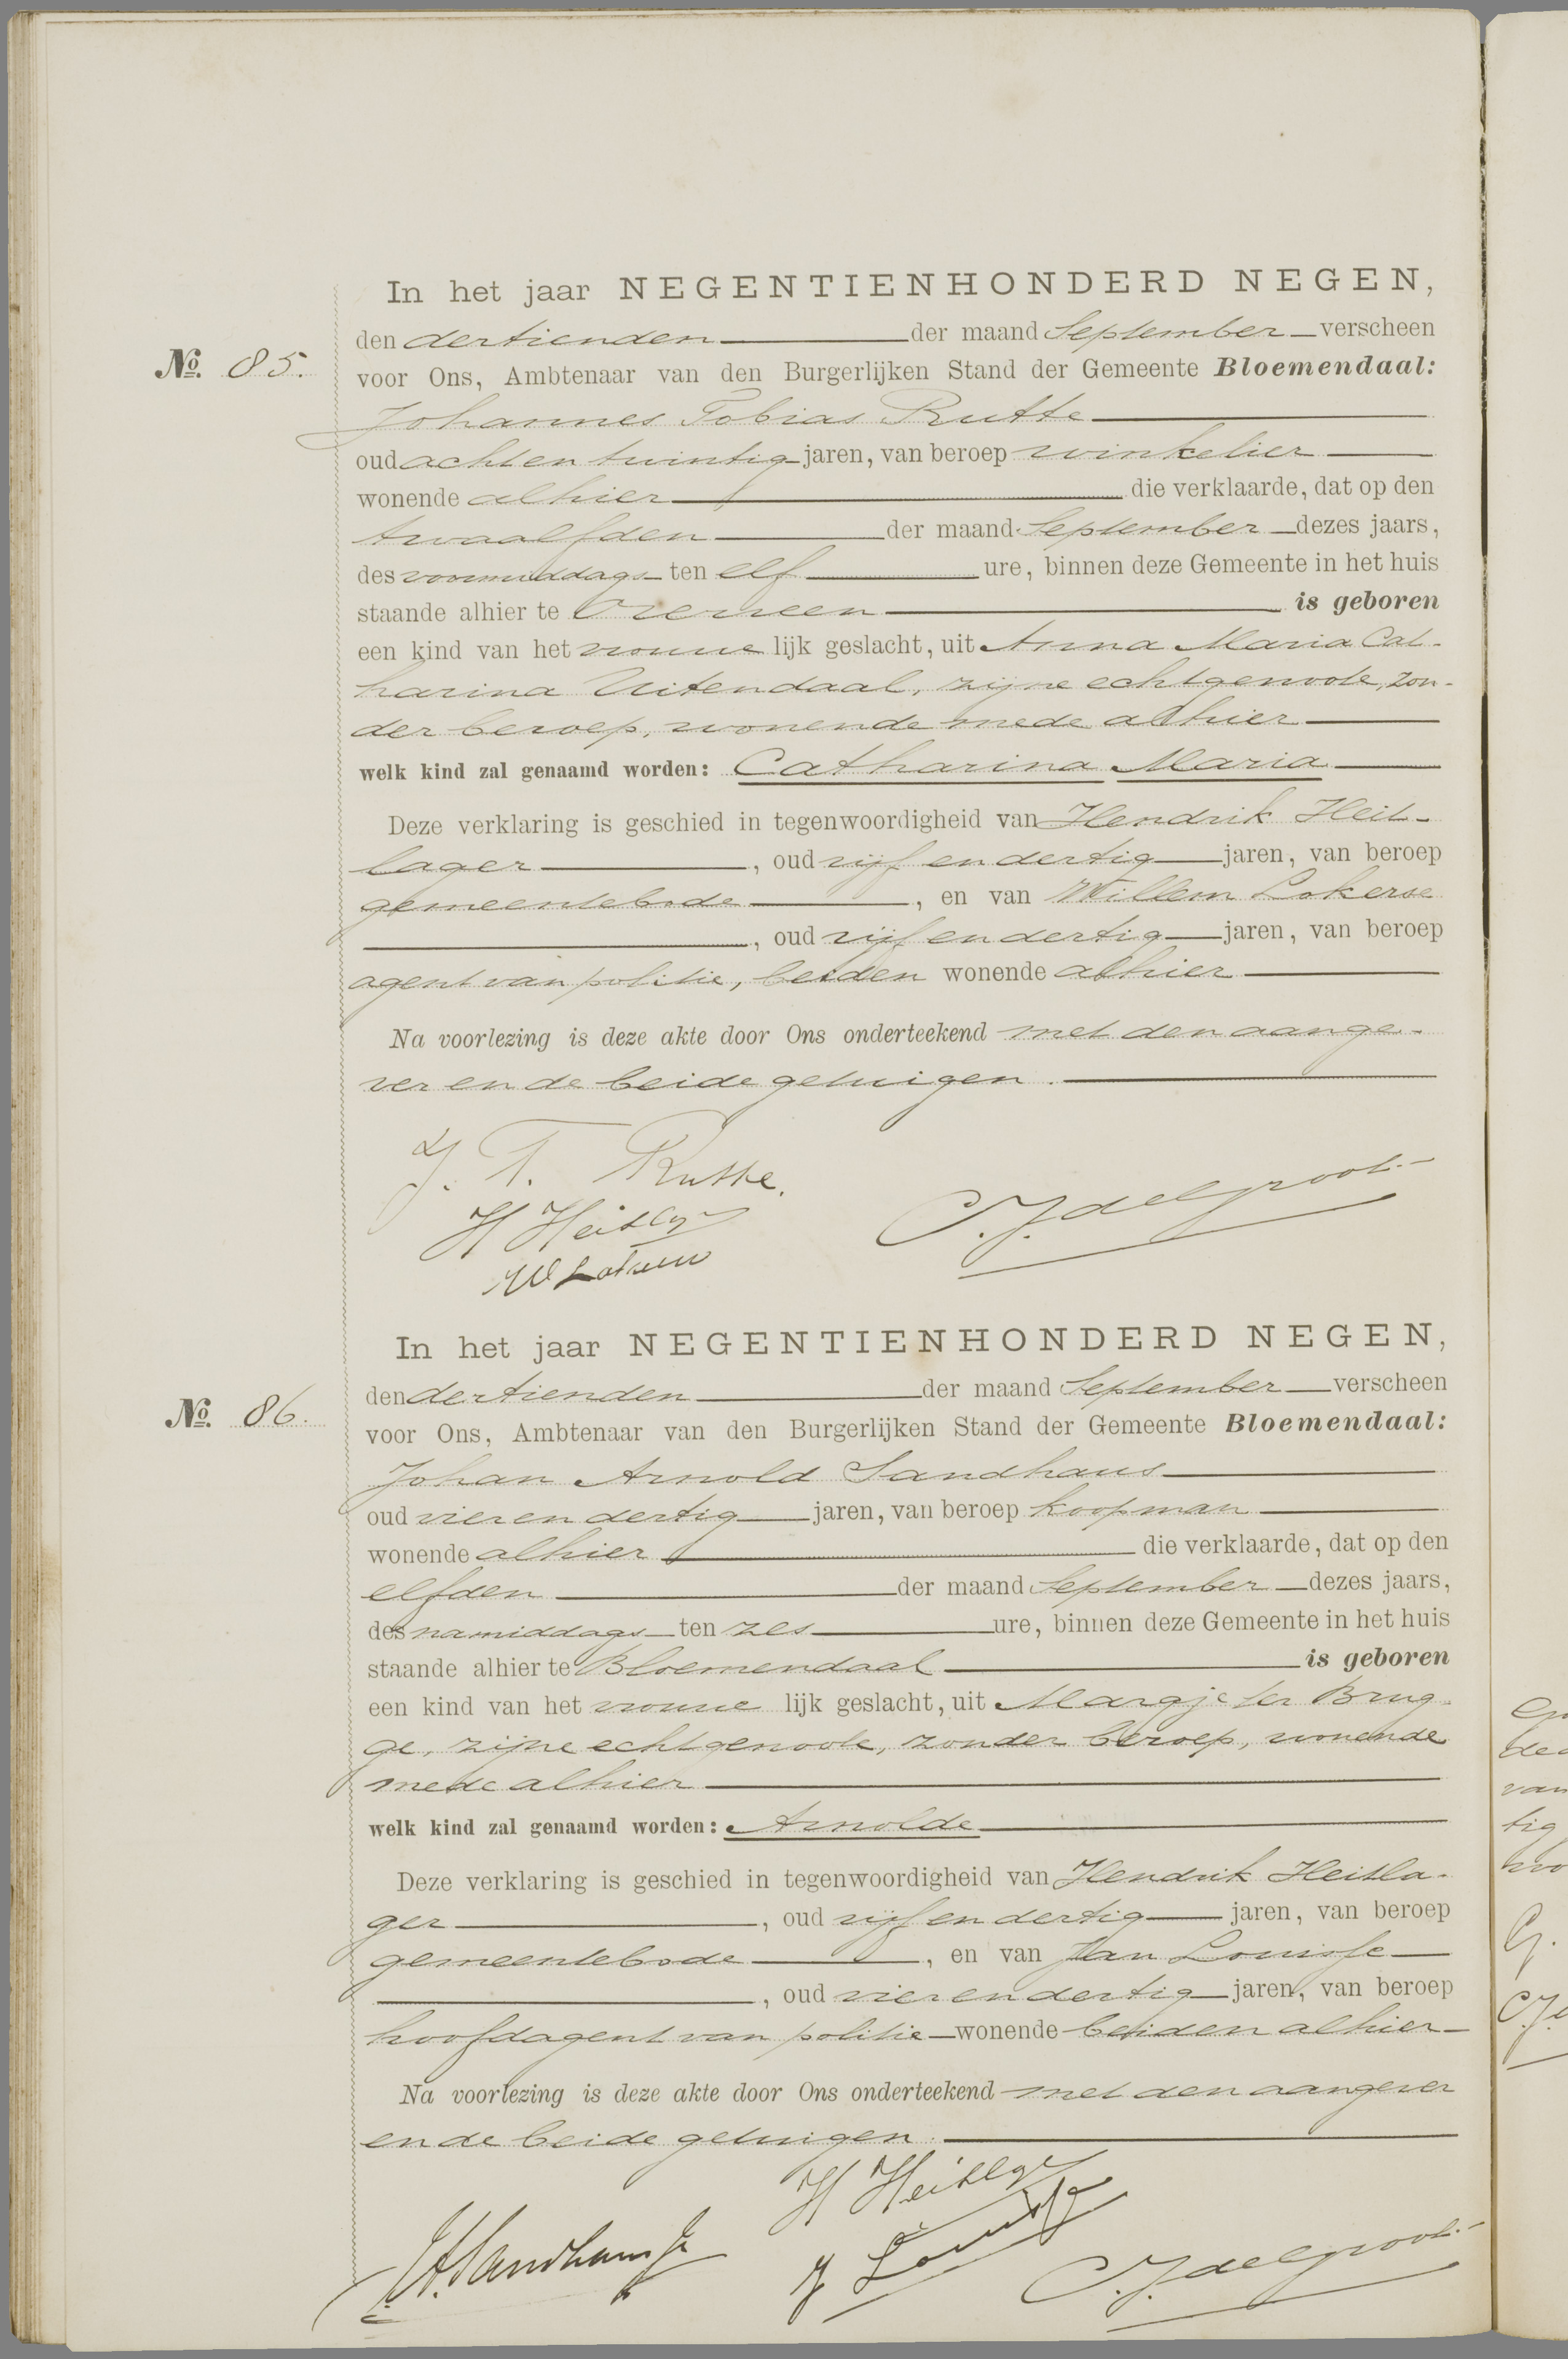 In het jaar NEGENTIENHONDERD NEGEN,
den dertienden der maand September verscheen
No. 85.
voor Ons, Ambtenaar van den Burgerlijken Stand der Gemeente Bloemendaal:
Johannes Tobias Rutte
oud achten twintig jaren, van beroep winkelier
wonende alhier die verklaarde, dat op den
twaalfden der maand September dezes jaars,
des voormiddags ten elf ure, binnen deze Gemeente in het huis
staande alhier te Overveen is geboren
een kind van het vrouwe lijk geslacht, uit Anna Maria Cat-
harina Uitendaal, zijne echtgenoote, zon-
der beroep, wonende mede alhier
welk kind zal genaamd worden: Catharina Maria
Deze verklaring is geschied in tegenwoordigheid van Hendrik Heit-
lager, oud vijf en dertig jaren, van beroep
gemeentebode, en van Willem Lokerse
, oud vijf en dertig jaren, van beroep
agent van politie, beiden wonende alhier
Na voorlezing is deze akte door Ons onderteekend met den aange-
ver en de beide getuigen.
J. T. Rutte.
H Heitlager
W Lokerse
C.J. de Groot
In het jaar NEGENTIENHONDERD NEGEN,
den dertienden der maand September verscheen
No. 86.
voor Ons, Ambtenaar van den Burgerlijken Stand der Gemeente Bloemendaal:
Johan Arnold Sandhaus
oud vier en dertig jaren, van beroep koopman
wonende alhier die verklaarde, dat op den
elfden der maand September dezes jaars,
des namiddags ten zes ure, binnen deze Gemeente in het huis
staande alhier te Bloemendaal is geboren
een kind van het vrouwe lijk geslacht, uit Margje ter Brug-
ge, zijne echtgenoote, zonder beroep, wonende
mede alhier
welk kind zal genaamd worden: Arnolde
Deze verklaring is geschied in tegenwoordigheid van Hendrik Heitla-
ger, oud vijf en dertig jaren, van beroep
gemeentebode, en van Jan Louisse
, oud vier en dertig jaren, van beroep
hoofdagent van politie wonende beiden alhier
Na voorlezing is deze akte door Ons onderteekend met den aangever
en de beide getuigen.
H Heitlager
J A Sandhaus Jr
J Louisse
C.J. de Groot